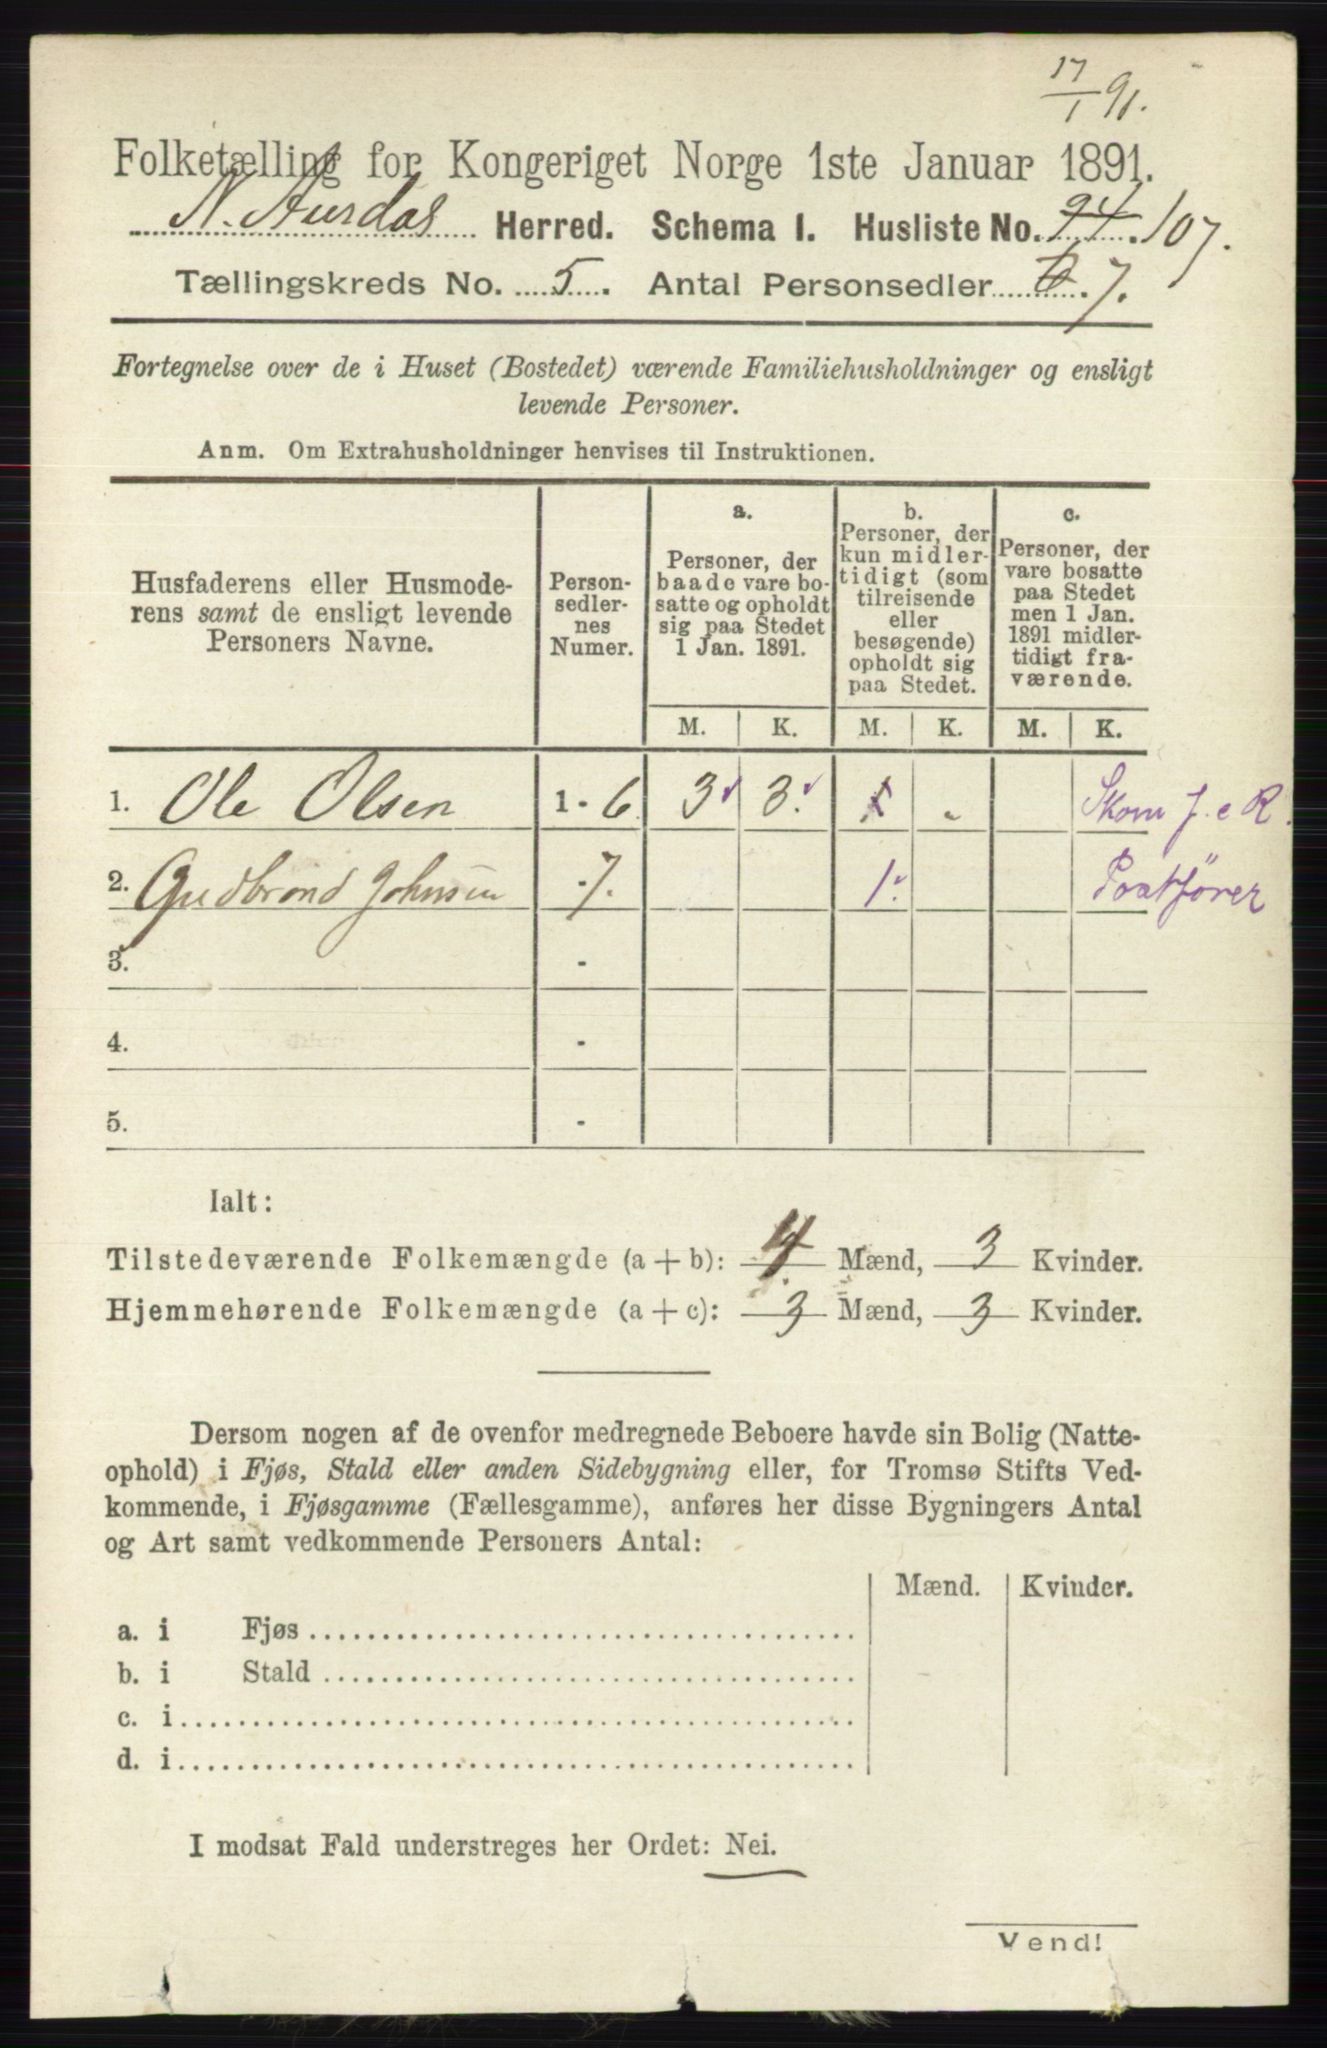 17/1 91.
Folketælling for Kongeriget Norge 1ste Januar 1891.
N. Aurdal Herred. Schema I. Husliste No. 94. 107.
Tællingskreds No. 5. Antal Personsedler 7.
Fortegnelse over de i Huset (Bostedet) værende Familiehusholdninger og ensligt
levende Personer.
Anm. Om Extrahusholdninger henvises til Instruktionen.
Husfaderens eller Husmode-
rens samt de ensligt levende
Personers Navne.
Person-
sedler-
nes
Numer.
a.
Personer, der
baade vare bo-
satte og opholdt
sig paa Stedet
1 Jan. 1891.
b.
Personer, der
kun midler-
tidigt (som
tilreisende
eller
besøgende)
opholdt sig
paa Stedet.
c.
Personer, der
vare bosatte
paa Stedet
men 1 Jan.
1891 midler-
tidigt fra-
værende.
M. K. M. K. M. K.
1. Ole Olsen 1 - 6 3 3. 1 „ Skom f. e R.
2. Gudbrand Johnsen - 7. 1. Postfører
3. -
4. -
5. -
Ialt:
Tilstedeværende Folkemængde (a + b): 4 Mænd, 3 Kvinder.
Hjemmehørende Folkemængde (a + c): 3 Mænd, 3 Kvinder.
Dersom nogen af de ovenfor medregnede Beboere havde sin Bolig (Natte-
ophold) i Fjøs, Stald eller anden Sidebygning eller, for Tromsø Stifts Ved-
kommende, i Fjøsgamme (Fællesgamme), anføres her disse Bygningers Antal
og Art samt vedkommende Personers Antal:
Mænd. Kvinder.
a. i Fjøs
b. i Stald
c. i
d. i
I modsat Fald understreges her Ordet: Nei.
Vend!